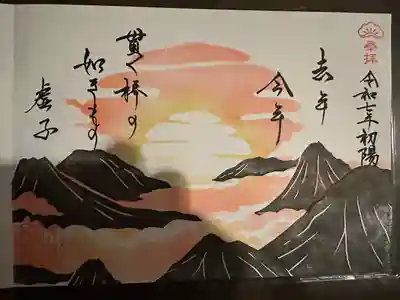 奉拝
令和七年初陽
去年
今年
貫く棒の
如きもの
虚子